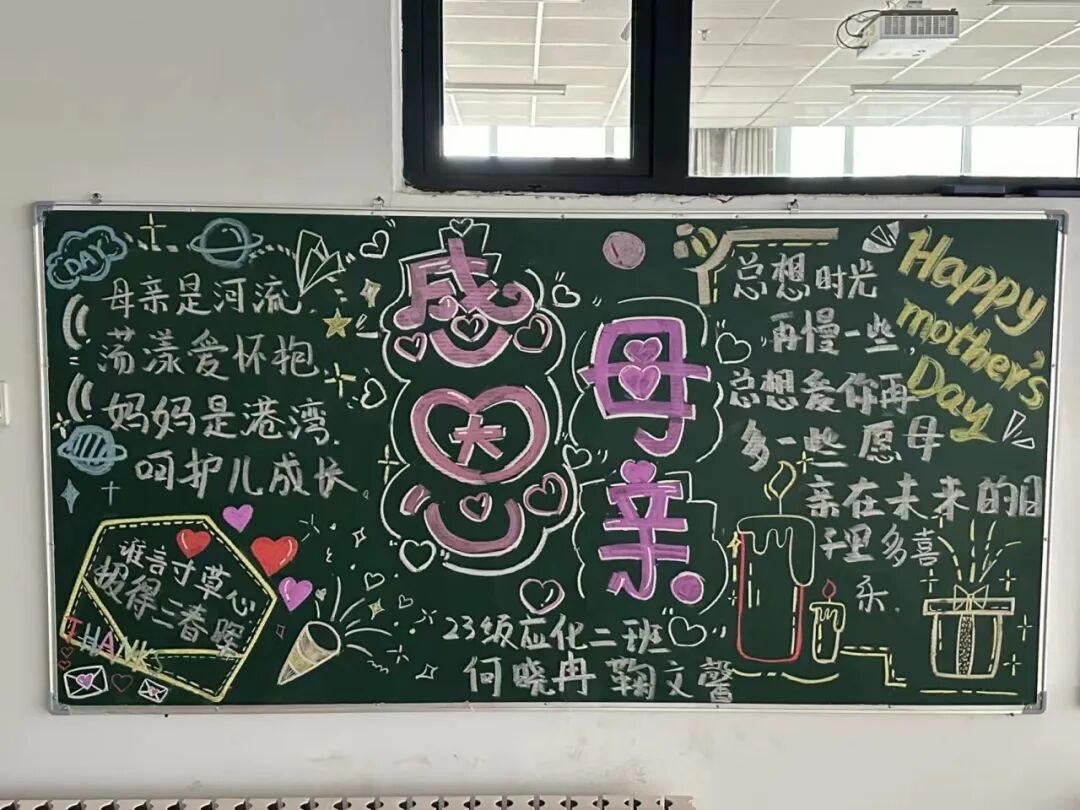 DAY
母亲是河流
荡漾爱怀抱
妈妈是港湾
呵护儿成长
谁言寸草心
报得三春晖
THANKS
感恩
母亲
总想时光
再慢一些,
总想爱你再
多一些 愿母
亲在未来的日
子里多喜
乐.
Happy
mother's
Day
23级应化二班
何晓冉 鞠文馨